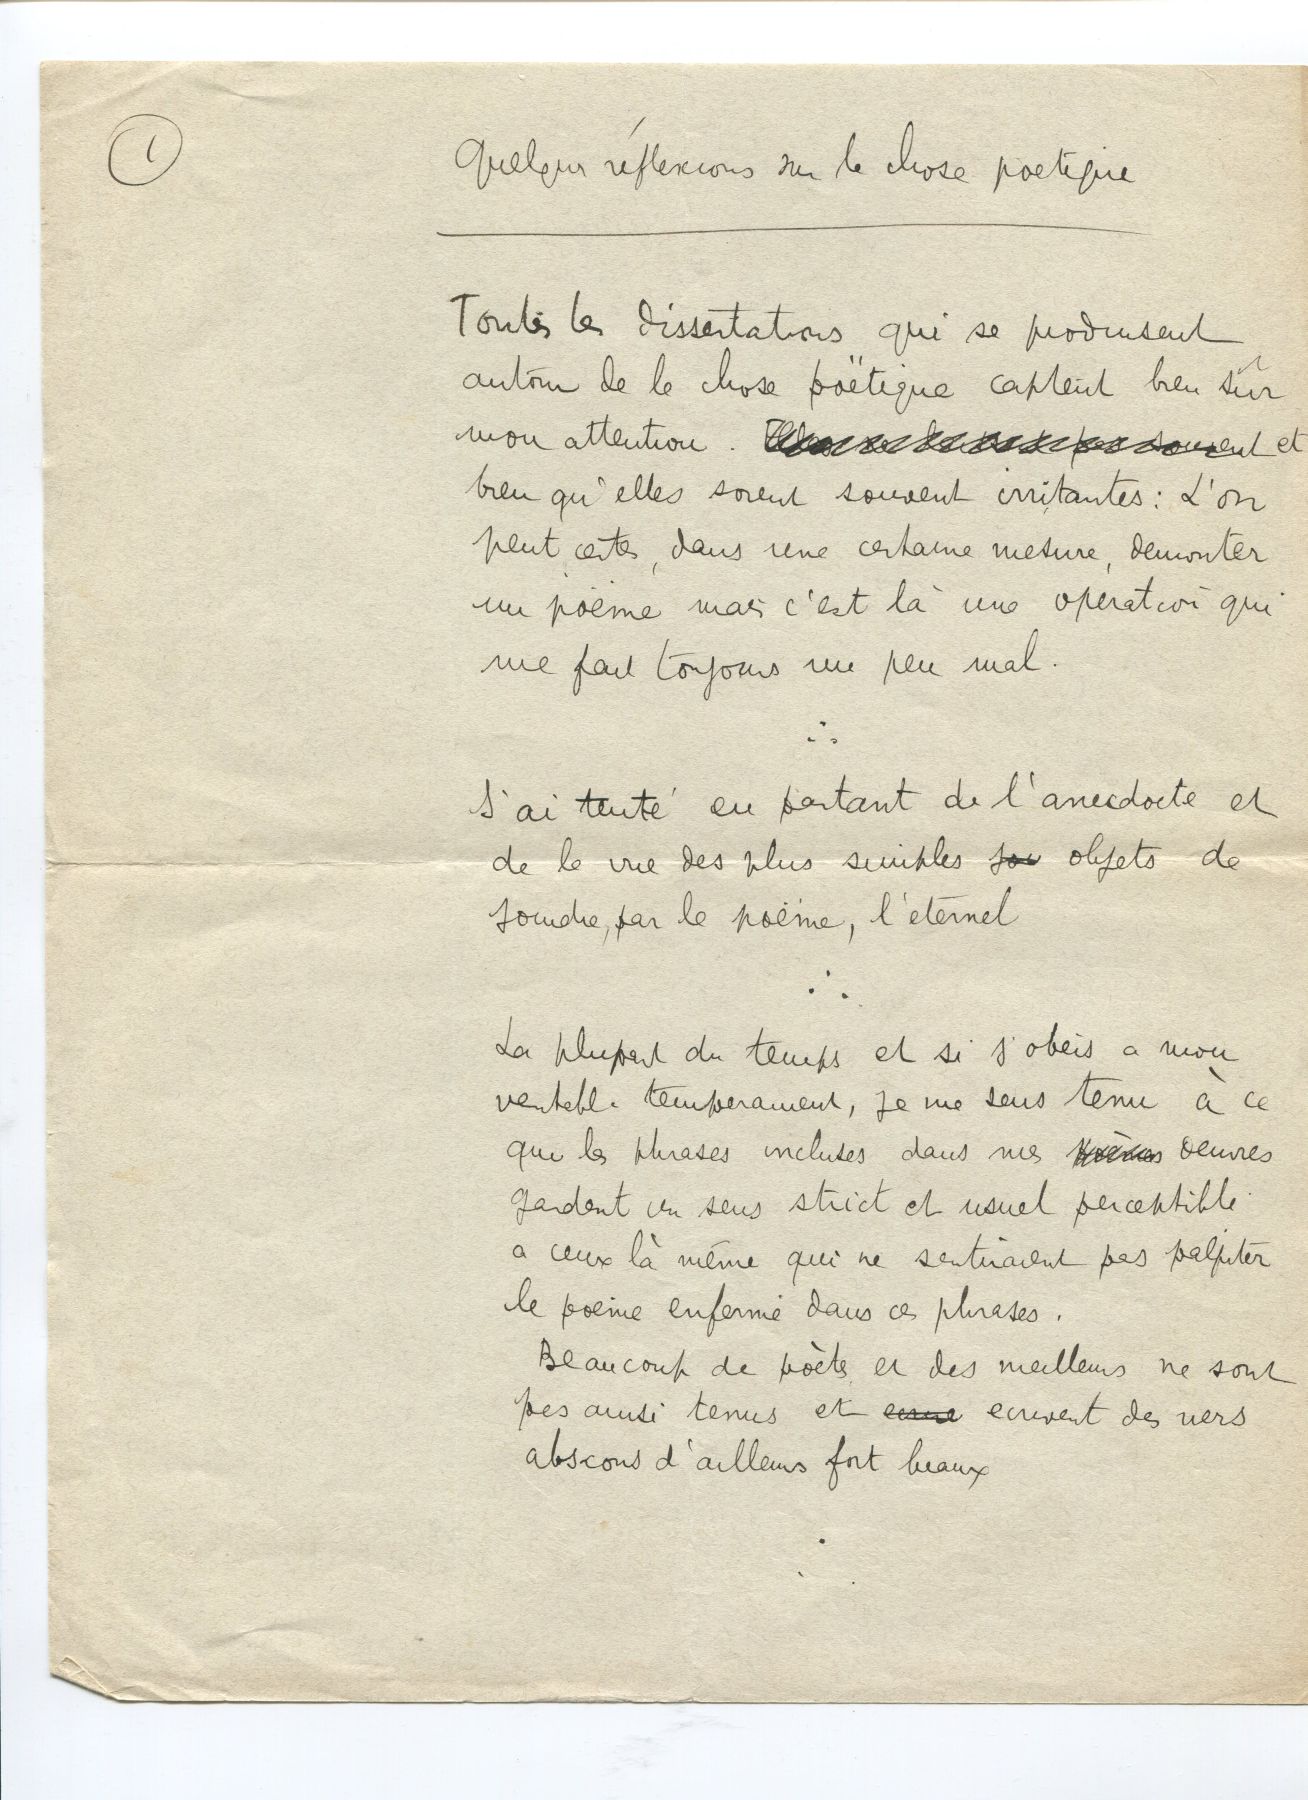 1
Quelques réflexions sur la chose poetique
Toutes les dissertations qui se produisent
autour de la chose poëtique captent bien sûr
mon attention. souvent et
bien qu'elles soient souvent irritantes : L'on
peut certes, dans une certaine mesure, demonter
un poëme mais c'est là une operation qui
me fait toujours un peu mal.
J'ai tenté en partant de l'anecdocte et
de la vue des plus simples objets de
joindre, par le poëme, l'eternel
La plupart du temps et si j'obeis a mon
veritable temperament, je me sens tenu à ce
que les phrases incluses dans mes poèmes oeuvres
gardent un sens strict et usuel perceptible
a ceux là même qui ne sentiraient pas palpiter
le poeme enfermé dans ces phrases.
Beaucoup de poètes et des meilleurs ne sont
pas ainsi tenus et ecrivent des vers
abscons d'ailleurs fort beaux